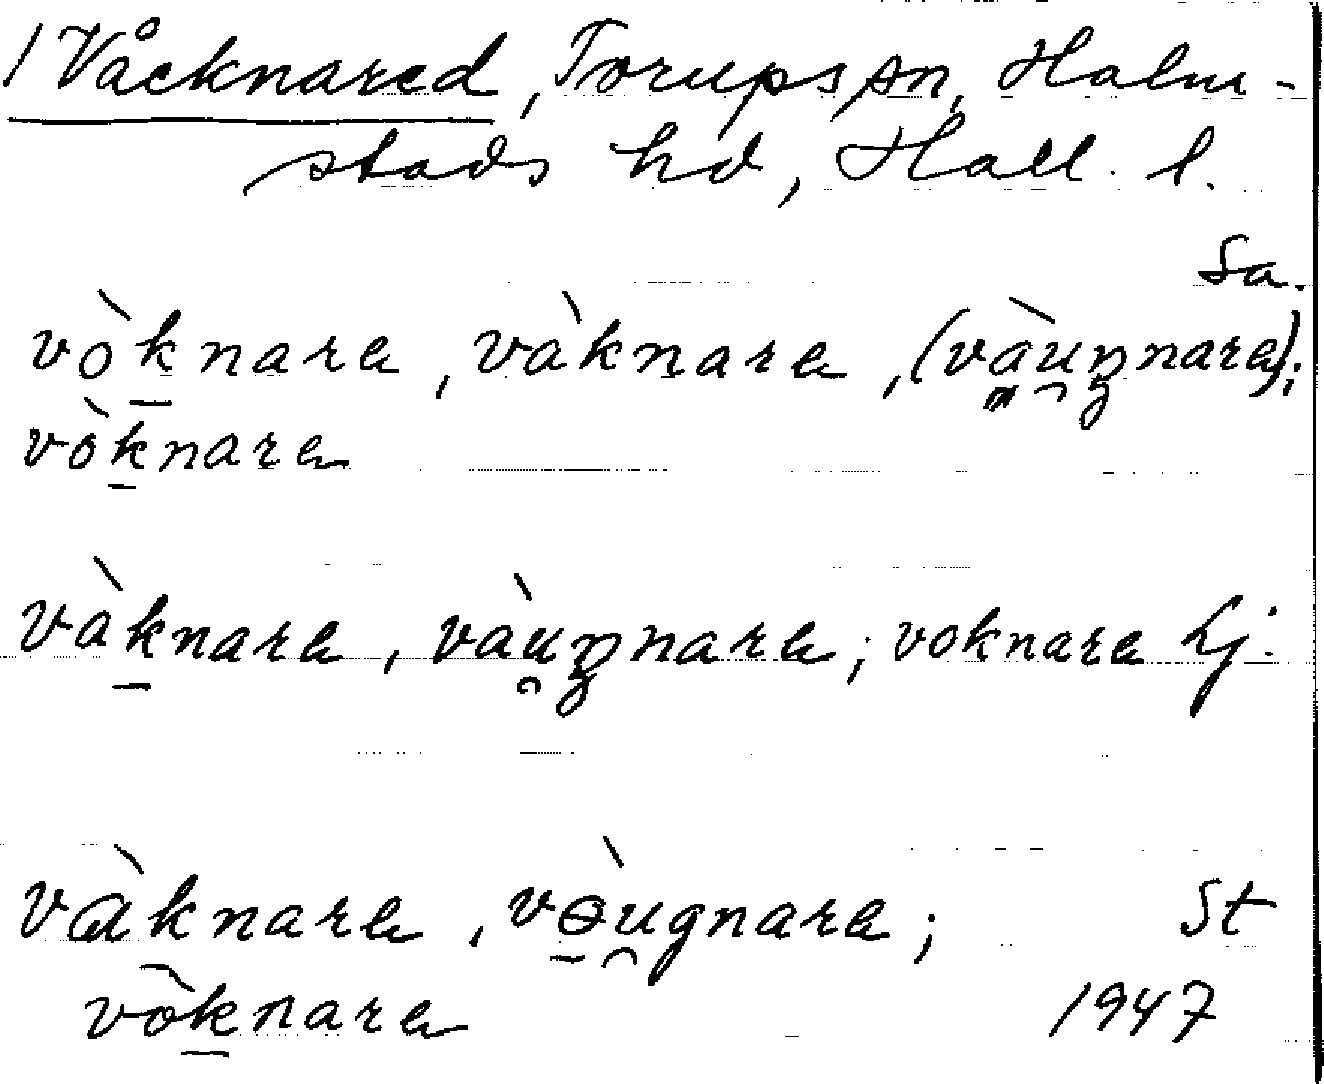 / Våcknared, Torups sn, Halm-
stads hd, Hall. l.
Sa.
vòknare, vàknare, (vàuŋnare);
vòknare
vàknare, vàuŋnare; voknare Lj.
vàknare, vɵ̀ugnare; St
vòknare 1947